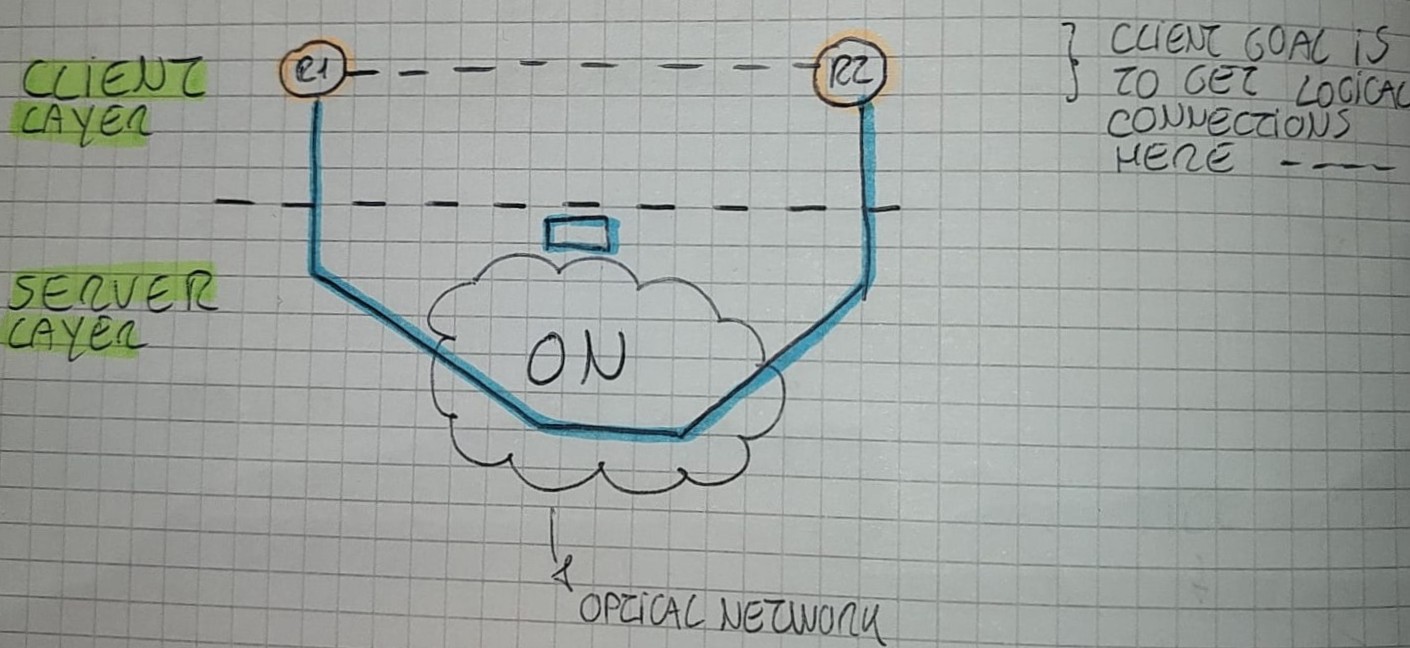 CLIENT
LAYER
R1
R2
} CLIENT GOAL IS
TO GET LOGICAL
CONNECTIONS
HERE ----
SERVER
LAYER
ON
OPTICAL NETWORK